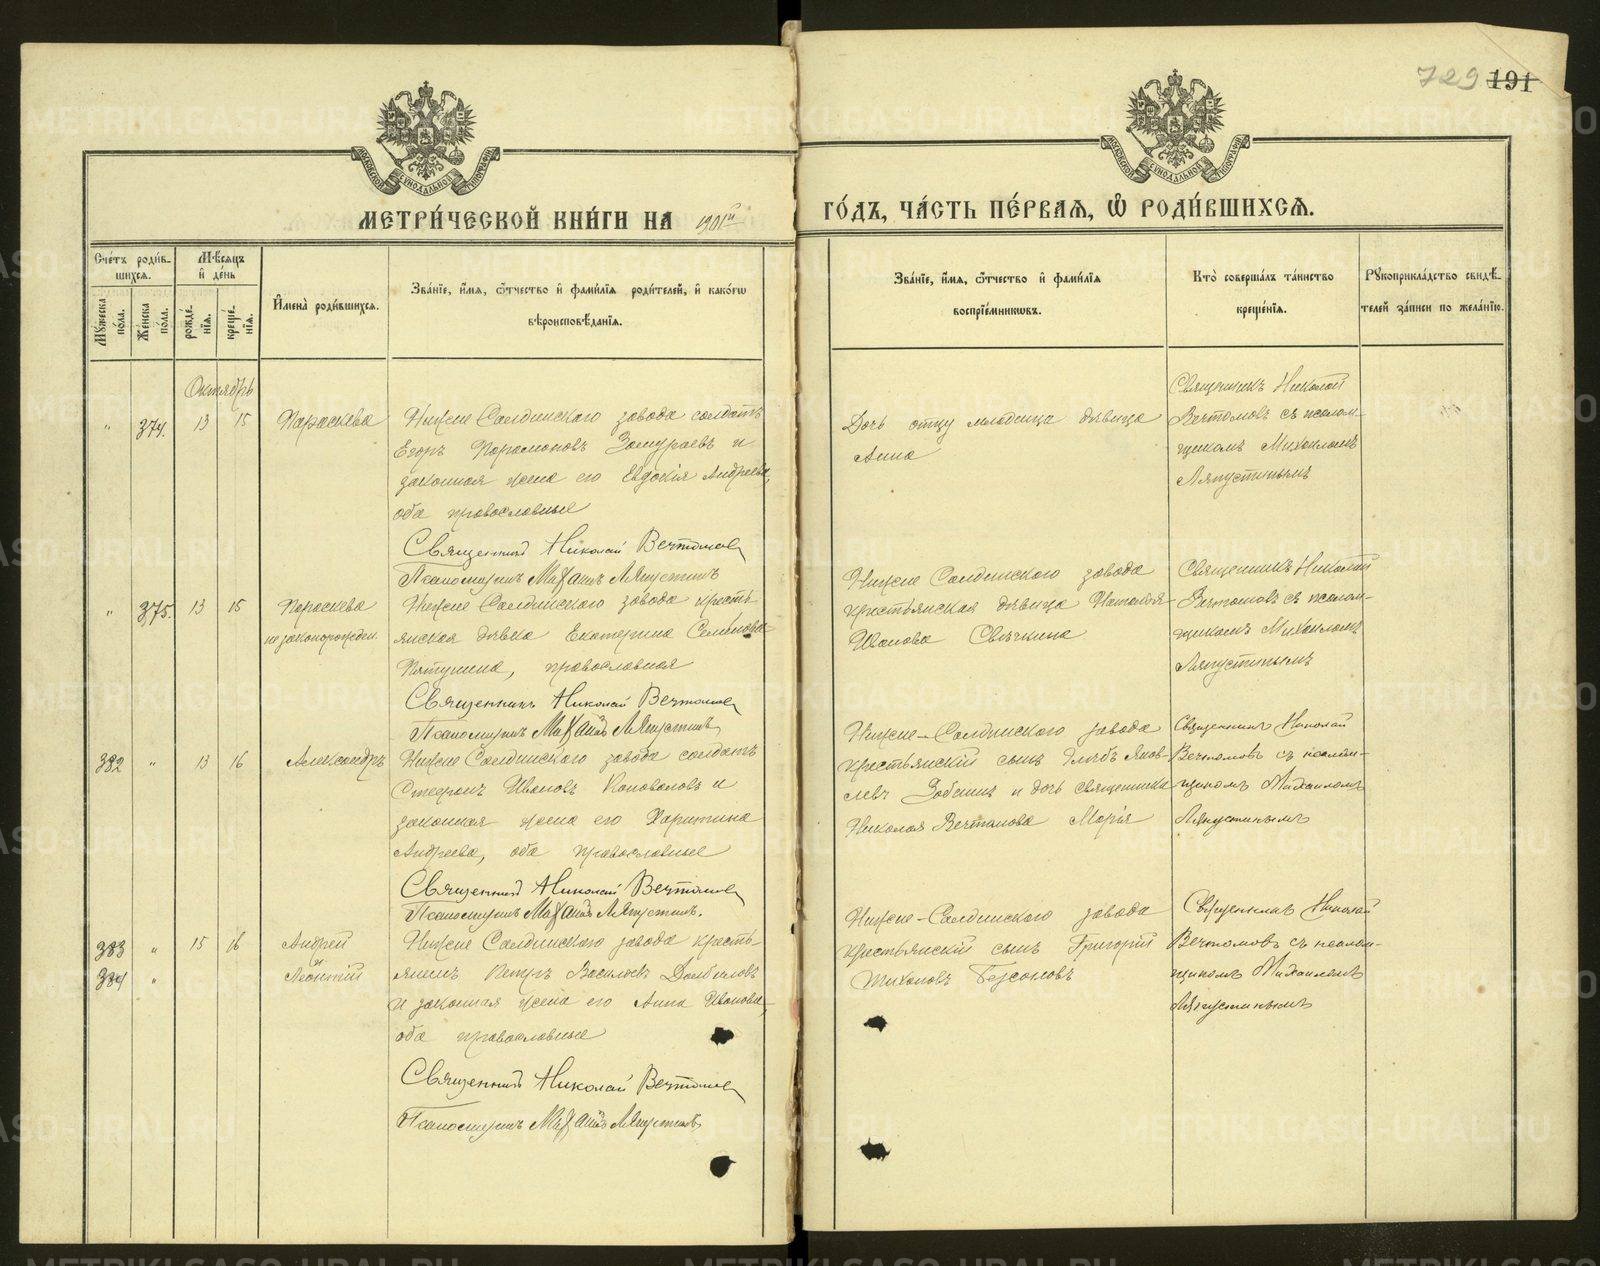 729 191
МОСКОВСКОЙ СѴНОДАЛЬНОЙ ТИПОГРАФІИ
МОСКОВСКОЙ СѴНОДАЛЬНОЙ ТИПОГРАФІИ
МЕТРИ́ЧЕСКОЙ КНИ́ГИ НА 1901й ГО́ДЪ, ЧА́СТЬ ПЕ́РВАѦ, Ѽ РОДИ́ВШИХСѦ.
Сче́тъ роди́в-
шихсѧ.
Мꙋ́жеска по́ла.
Же́нска по́ла.
Мѣ́сѧцъ
и҆ де́нь
рожде́-
нїѧ.
креще́-
нїѧ.
И҆мена̀ роди́вшихсѧ.
Зва́нїе, и҆́мѧ, ѻ҆́тчество и҆ фами́лїѧ роди́телей, и҆ како́гѡ
вѣроисповѣ́данїѧ.
Зва́нїе, и҆́мѧ, ѻ҆́тчество и҆ фами́лїѧ
воспрїе́мникѡвъ.
Кто̀ соверша́лъ та́инство
креще́нїѧ.
Рꙋкоприкла́дство свидѣ́-
телей за́писи по жела́нїю.
Октябрь
" 374. 13 15 Параскева
Нижне Салдинскаго завода солдатъ
Егоръ Парамоновъ Замураевъ и
законная жена его Евдокія Андреева,
оба православные
Священникъ Николай Вечтомовъ
Псаломщикъ Михаилъ Ляпустинъ
Дочь отцу младенца дѣвица
Анна
Священникъ Николай
Вечтомовъ съ псалом-
щикомъ Михаиломъ
Ляпустинымъ
" 375. 13 15 Параскева
незаконорожден.
Нижне Салдинскаго завода кресть-
янская дѣвка Екатерина Семенова
православная
Священникъ Николай Вечтомовъ
Псаломщикъ Михаилъ Ляпустинъ
Нижне Салдинскаго завода
крестьянская дѣвица Наталья
Иванова Свѣчкина
Священникъ Николай
Вечтомовъ съ псалом-
щикомъ Михаиломъ
Ляпустинымъ
382 " 13 16 Александръ
Нижне Салдинскаго завода солдатъ
Стефанъ Ивановъ Коноваловъ и
законная жена его Харитина
Андреева, оба православные
Священникъ Николай Вечтомовъ
Псаломщикъ Михаилъ Ляпустинъ.
Нижне-Салдинскаго завода
крестьянскій сынъ Глѣбъ Яков-
левъ Зобнинъ и дочь священника
Николая Вечтомова Марія
Священникъ Николай
Вечтомовъ съ псалом-
щикомъ Михаиломъ
Ляпустинымъ
383 " 15 16 Андрей
и
384 " Леонтій
Нижне Салдинскаго завода кресть-
янинъ Петръ Васильевъ
и законная жена его Анна Иванова,
оба православные
Священникъ Николай Вечтомовъ
Псаломщикъ Михаилъ Ляпустинъ
Нижне-Салдинскаго завода
крестьянскій сынъ Григорій
Тихоновъ Берсеновъ
Священникъ Николай
Вечтомовъ съ псалом-
щикомъ Михаиломъ
Ляпустинымъ
METRIKI.GASO-URAL.RU